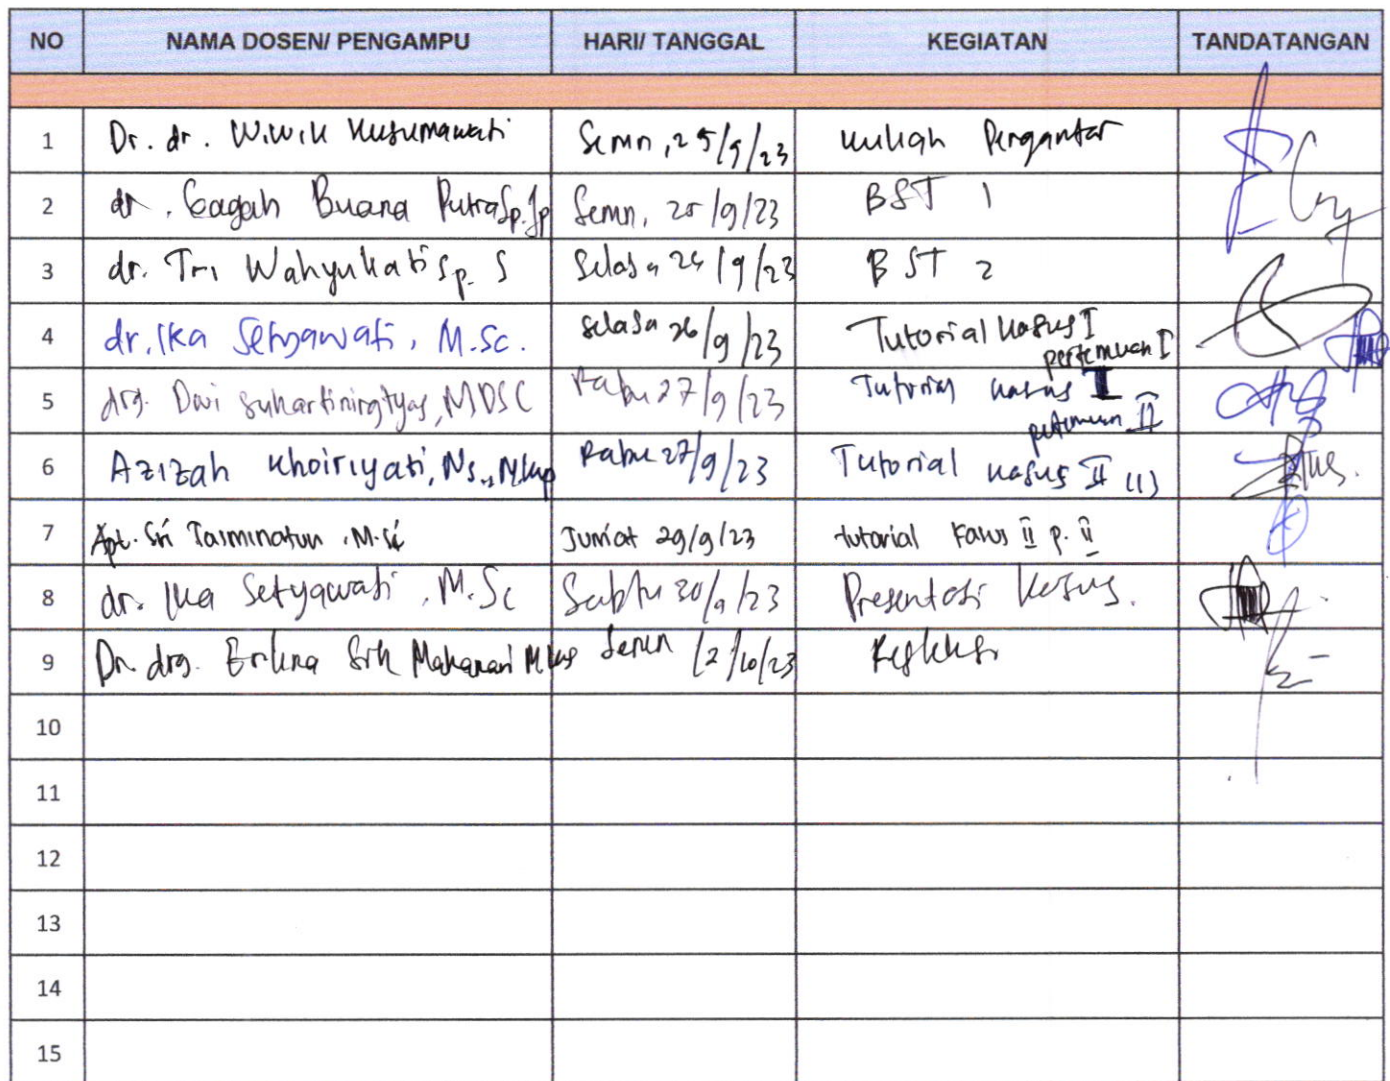 NO NAMA DOSEN/ PENGAMPU HARI/ TANGGAL KEGIATAN TANDATANGAN
1 Dr. dr. Wiwik Kusumawati Senin, 25/9/23 Kuliah Pengantar
2 dr. Gagah Buana Putra Sp.Jp Senin, 25/9/23 BST 1
3 dr. Tri Wahyukati Sp. S Selasa 26/9/23 BST 2
4 dr. Ika Setyawati, M.Sc. Selasa 26/9/23 Tutorial Kasus I
pertemuan I
5 drg. Dwi Suhartiningtyas, MDSC Rabu 27/9/23 Tutorial Kasus I
pertemuan II
6 Azizah Khoiriyati, Ns., M.Kep Rabu 27/9/23 Tutorial Kasus II (1)
7 Apt. Sri Tasminatun, M.Si Jumat 29/9/23 tutorial Kasus II p. II
8 dr. Ika Setyawati, M.Sc Sabtu 30/9/23 Presentasi Kasus.
9 Dr. drg. Erlina Sih Mahanani M.Kes Senin 2/10/23 Refleksi
10
11
12
13
14
15